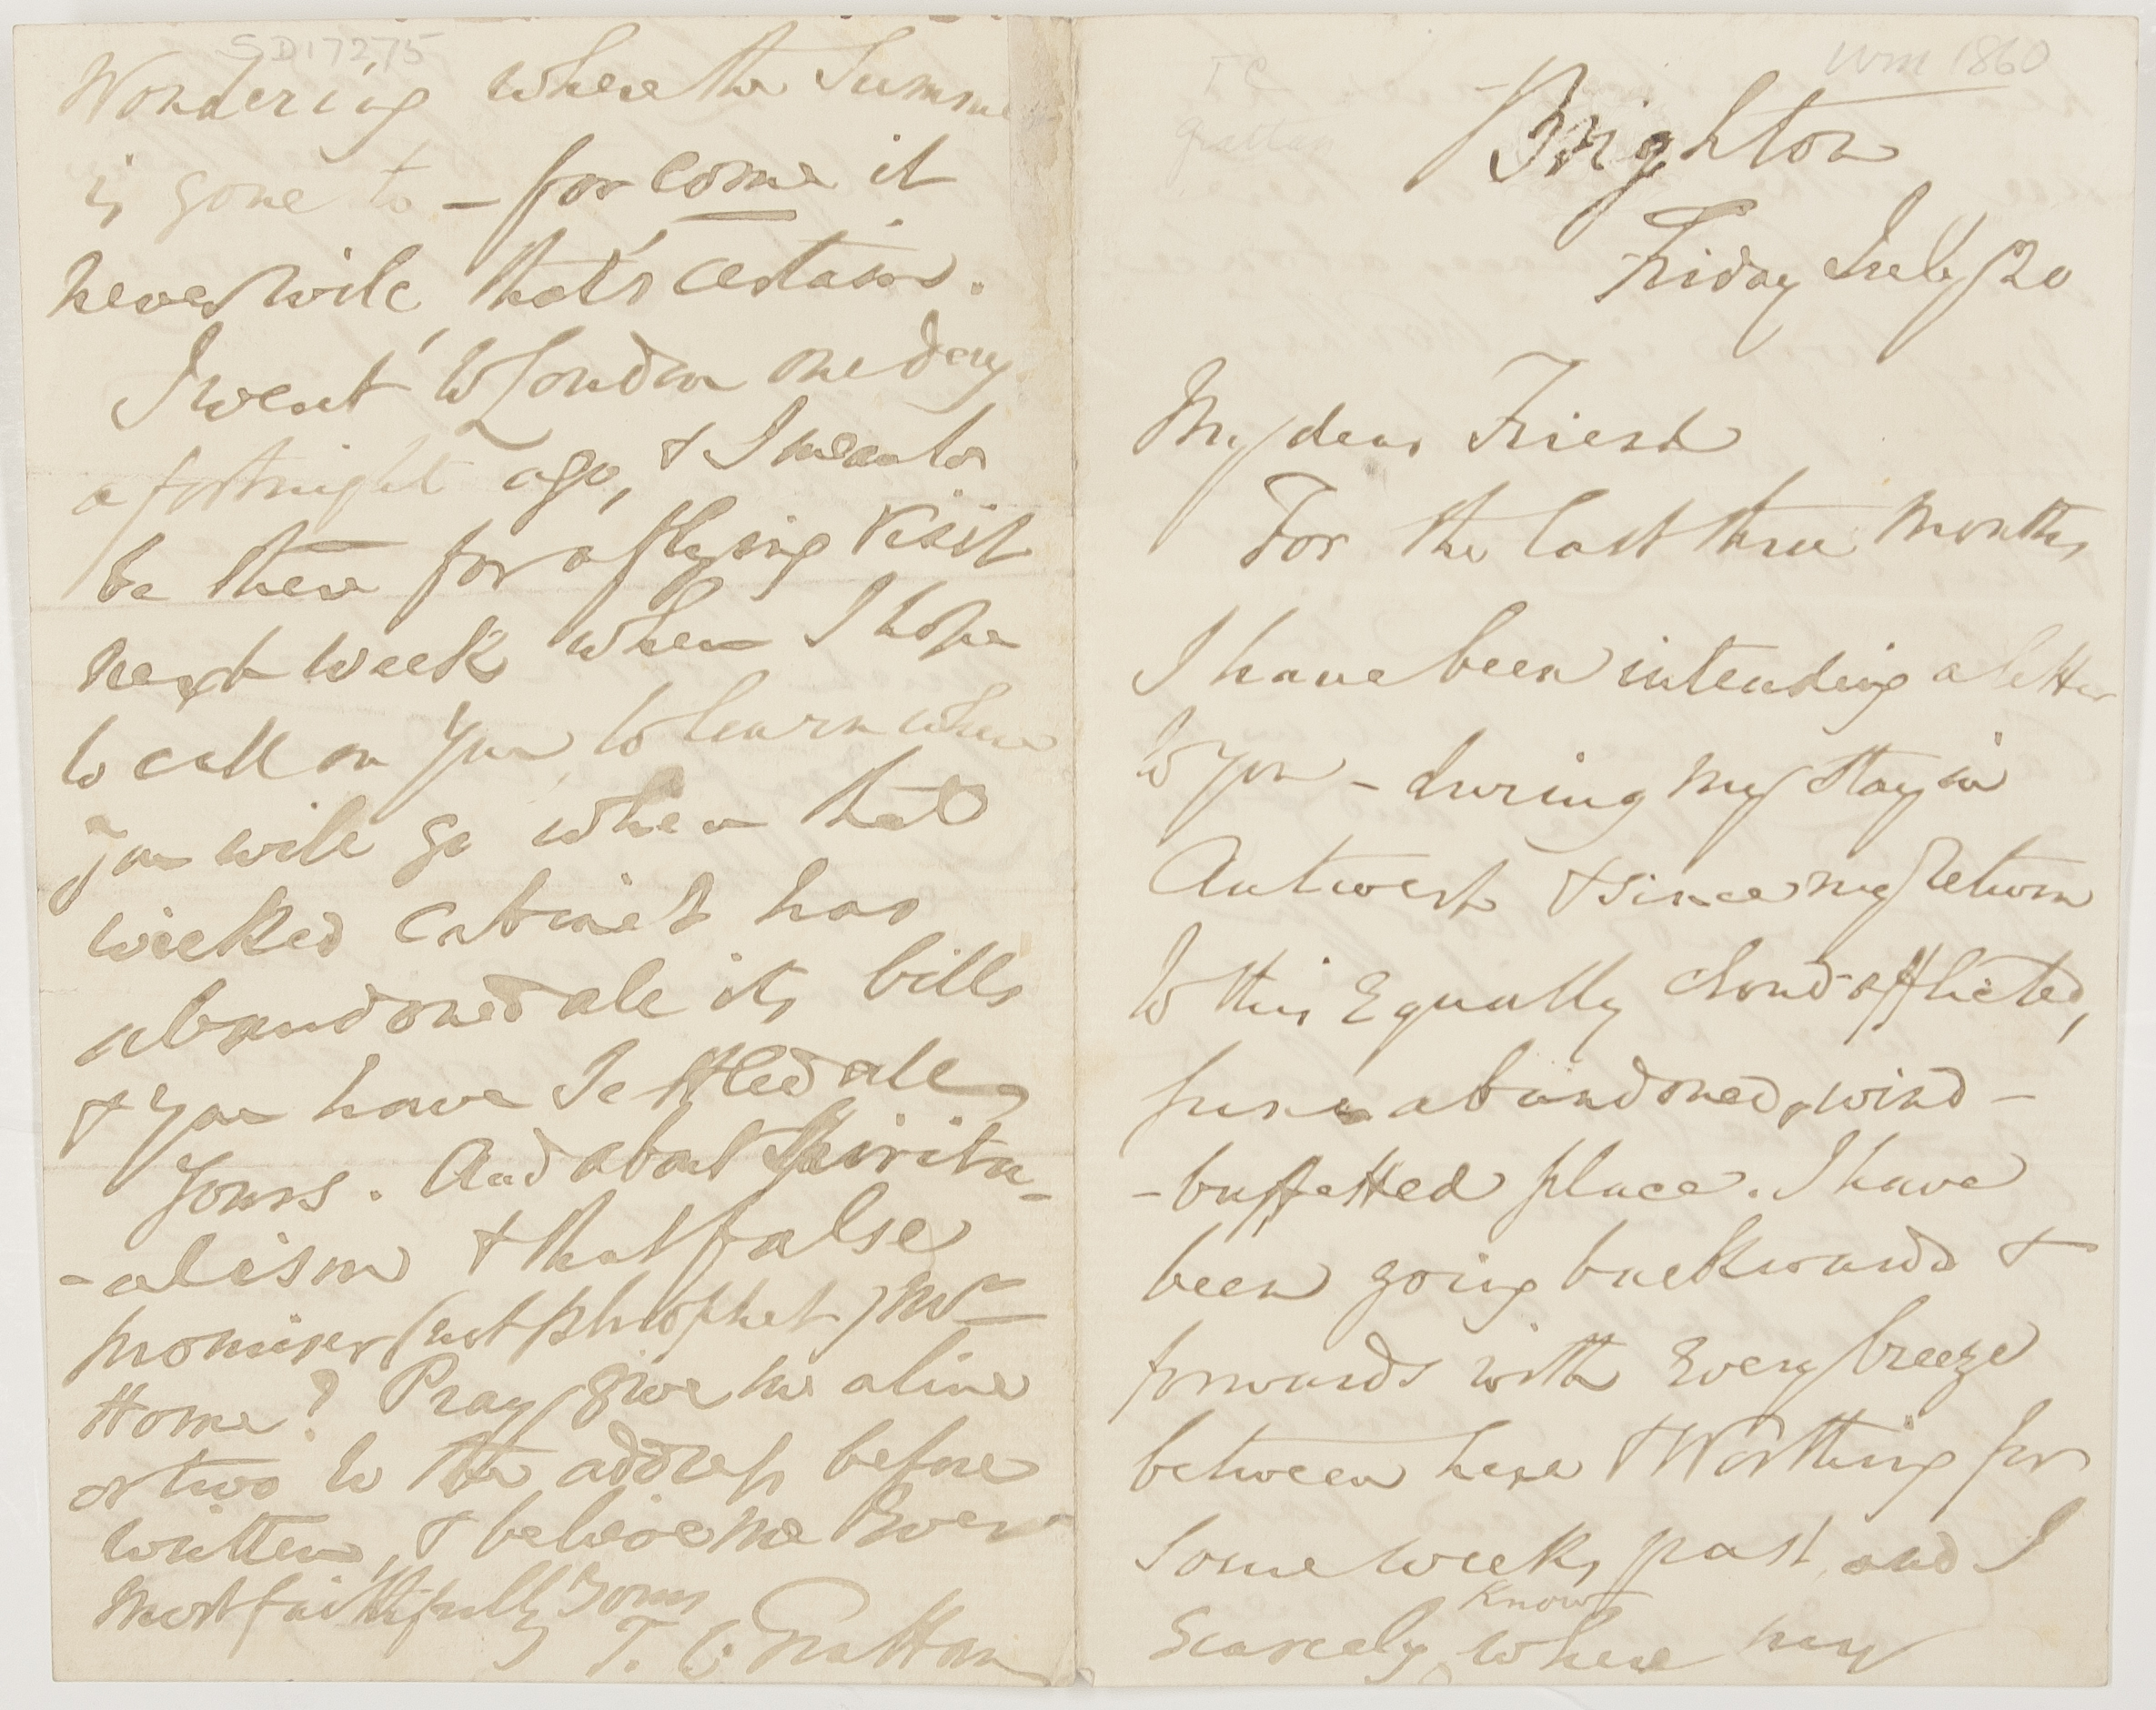 wm 1860
TC
Grattan
Brighton
Friday July 20
My dear Friend
For the last three months
I have been intending a letter
to you - during my stay in
Antwerp & since my return
to this equally cloud-afflicted,
abandoned, wind-
-buffetted place. I have
been going backwards &
forwards with every breeze
between here & Worthing for
some weeks past, and I
know
scarcely where my
SD17275
Wondering where the Summe
is gone to - for come it
never will, that's certain.
I went to London one day
a fortnight ago, & I mean to
be there for a flying visit
next week when I hope
to call on you, to learn where
you will go when that
wicked Cabinet has
abandoned all its bills
& you have settled all
yours. And about Spiritu-
-alism & that false
promiser (not prophet) Mr
Home? Pray give me a line
or two to the address before
written, & believe me Ever
most faithfully yours
T. C. Grattan